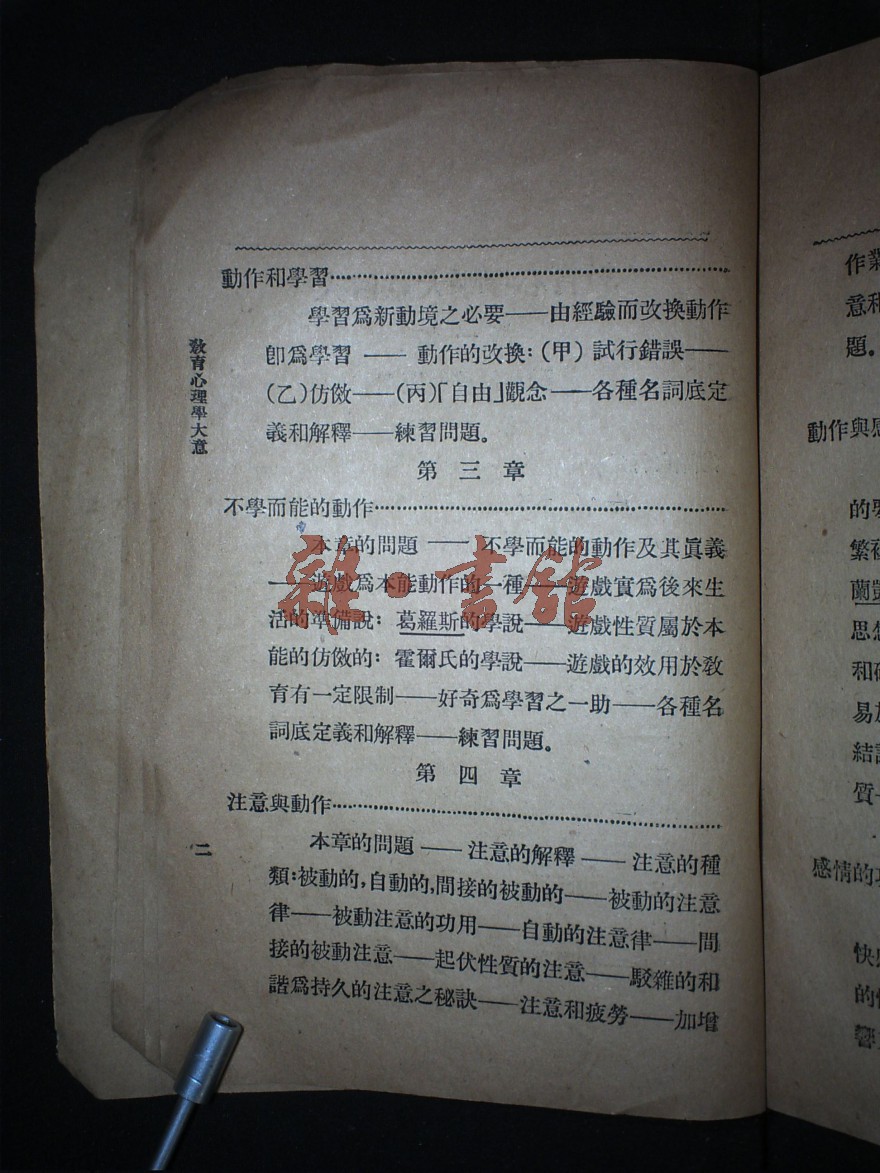 教育心理學大意
動作和學習
學習爲新動境之必要——由經驗而改換動作
卽爲學習——動作的改換:(甲)試行錯誤——
(乙)仿傚——(丙)「自由」觀念——各種名詞底定
義和解釋——練習問題。
第三章
不學而能的動作
本章的問題——不學而能的動作及其眞義
——遊戲爲本能動作的一種——遊戲實爲後來生
活的準備說:葛羅斯的學說——遊戲性質屬於本
能的仿傚的:霍爾氏的學說——遊戲的效用於敎
育有一定限制——好奇爲學習之一助——各種名
詞底定義和解釋——練習問題。
第四章
注意與動作
本章的問題——注意的解釋——注意的種
類:被動的,自動的,間接的被動的——被動的注意
律——被動注意的功用——自動的注意律——間
接的被動注意——起伏性質的注意——駁雜的和
諧爲持久的注意之秘訣——注意和疲勞——加增
二
雜·書館
作業
意和
題。
動作與感
的
繁複
蘭
思想
和
易
結
質
感情的功
快
的
響